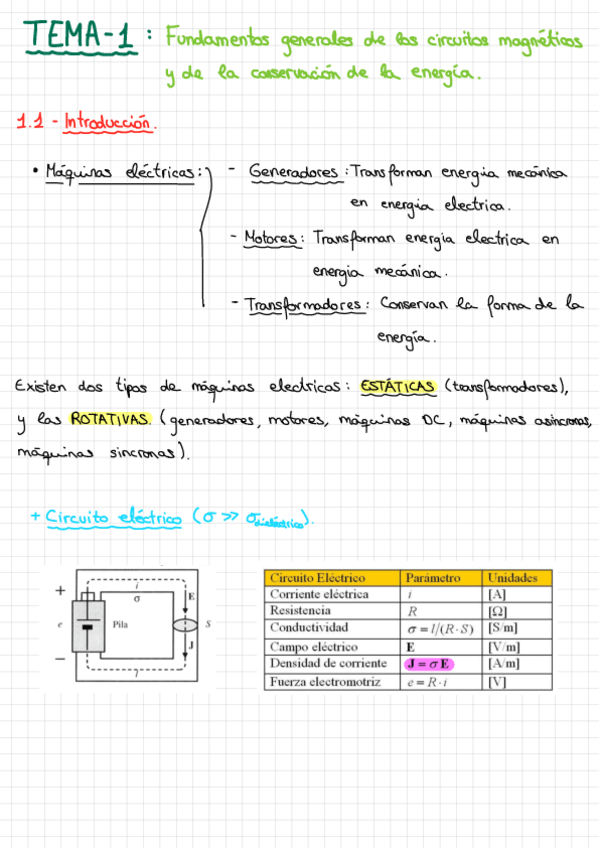 TEMA-1 : Fundamentos generales de los circuitos magnéticos
y de la conservación de la energía.
1.1 - Introducción.
• Máquinas eléctricas: - Generadores : Transforman energia mecánica
en energia electrica.
- Motores : Transforman energia electrica en
energia mecánica.
- Transformadores : Conservan la forma de la
energía.
Existen dos tipos de máquinas electricas : ESTÁTICAS (transformadores),
y las ROTATIVAS. (generadores, motores, máquinas DC, máquinas asincronas,
máquinas sincronas).
+ Circuito eléctrico (σ >> σdieléctrico).
i
+ σ E
e Pila S
− J
i
Circuito Eléctrico Parámetro Unidades
Corriente eléctrica i [A]
Resistencia R [Ω]
Conductividad σ = l/(R·S) [S/m]
Campo eléctrico E [V/m]
Densidad de corriente J = σ E [A/m]
Fuerza electromotriz e = R·i [V]